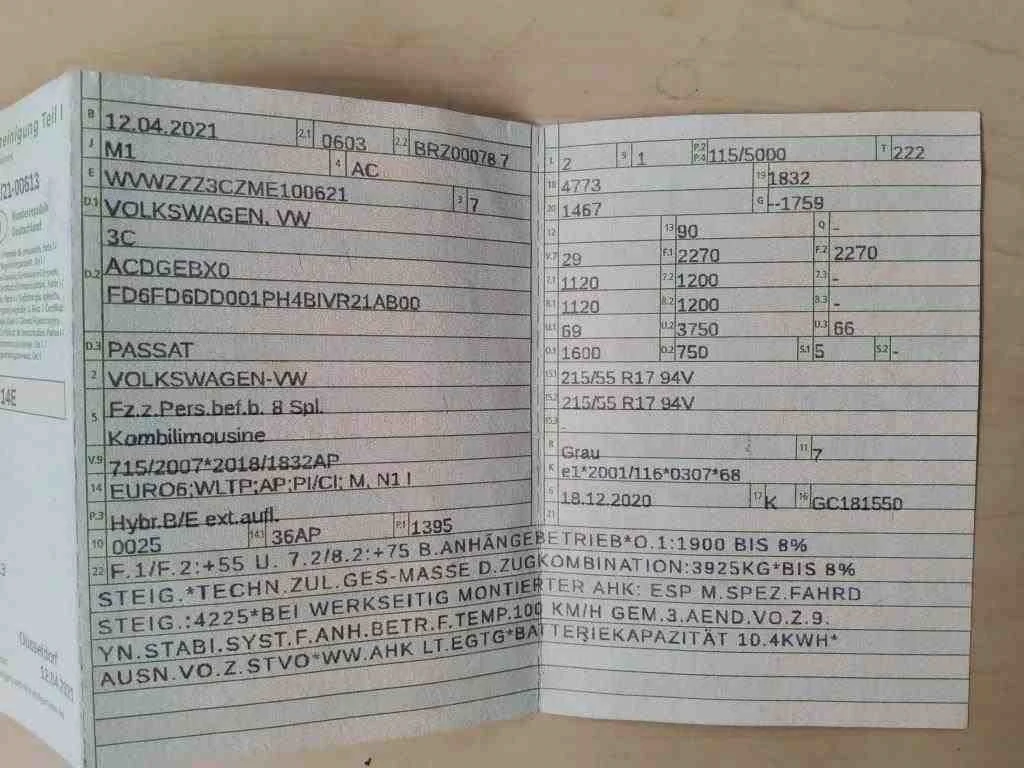 einigung Teil I
/21-00613
Bundesrepublik
Deutschland
14E
Düsseldorf
12.04.2021
B 12.04.2021 2.1 0603 2.2 BRZ00078 7
J M1 4 AC
E WVWZZZ3CZME100621 3 7
D.1 VOLKSWAGEN, VW
3C
D.2 ACDGEBX0
FD6FD6DD001PH4BIVR21AB00
D.3 PASSAT
2 VOLKSWAGEN-VW
5 Fz.z.Pers.bef.b. 8 Spl.
Kombilimousine
V.9 715/2007*2018/1832AP
14 EURO6;WLTP;AP;PI/CI; M, N1 I
P.3 Hybr.B/E ext.aufl.
10 0025 14.1 36AP P.1 1395
L 2 9 1 P.2 P.4 115/5000 T 222
18 4773 19 1832
20 1467 G --1759
12 13 90 Q -
V.7 29 F.1 2270 F.2 2270
7.1 1120 7.2 1200 7.3 -
8.1 1120 8.2 1200 8.3 -
U.1 69 U.2 3750 U.3 66
O.1 1600 O.2 750 S.1 5 S.2 -
15.1 215/55 R17 94V
15.2 215/55 R17 94V
15.3 -
R Grau 11 7
K e1*2001/116*0307*68
6 18.12.2020 17 K 16 GC181550
21
22 F.1/F.2:+55 U. 7.2/8.2:+75 B.ANHÄNGEBETRIEB*O.1:1900 BIS 8%
STEIG.*TECHN.ZUL.GES-MASSE D.ZUGKOMBINATION:3925KG*BIS 8%
STEIG.:4225*BEI WERKSEITIG MONTIERTER AHK: ESP M.SPEZ.FAHRD
YN.STABI.SYST.F.ANH.BETR.F.TEMP.100 KM/H GEM.3.AEND.VO.Z.9.
AUSN.VO.Z.STVO*WW.AHK LT.EGTG*BATTERIEKAPAZITÄT 10.4KWH*